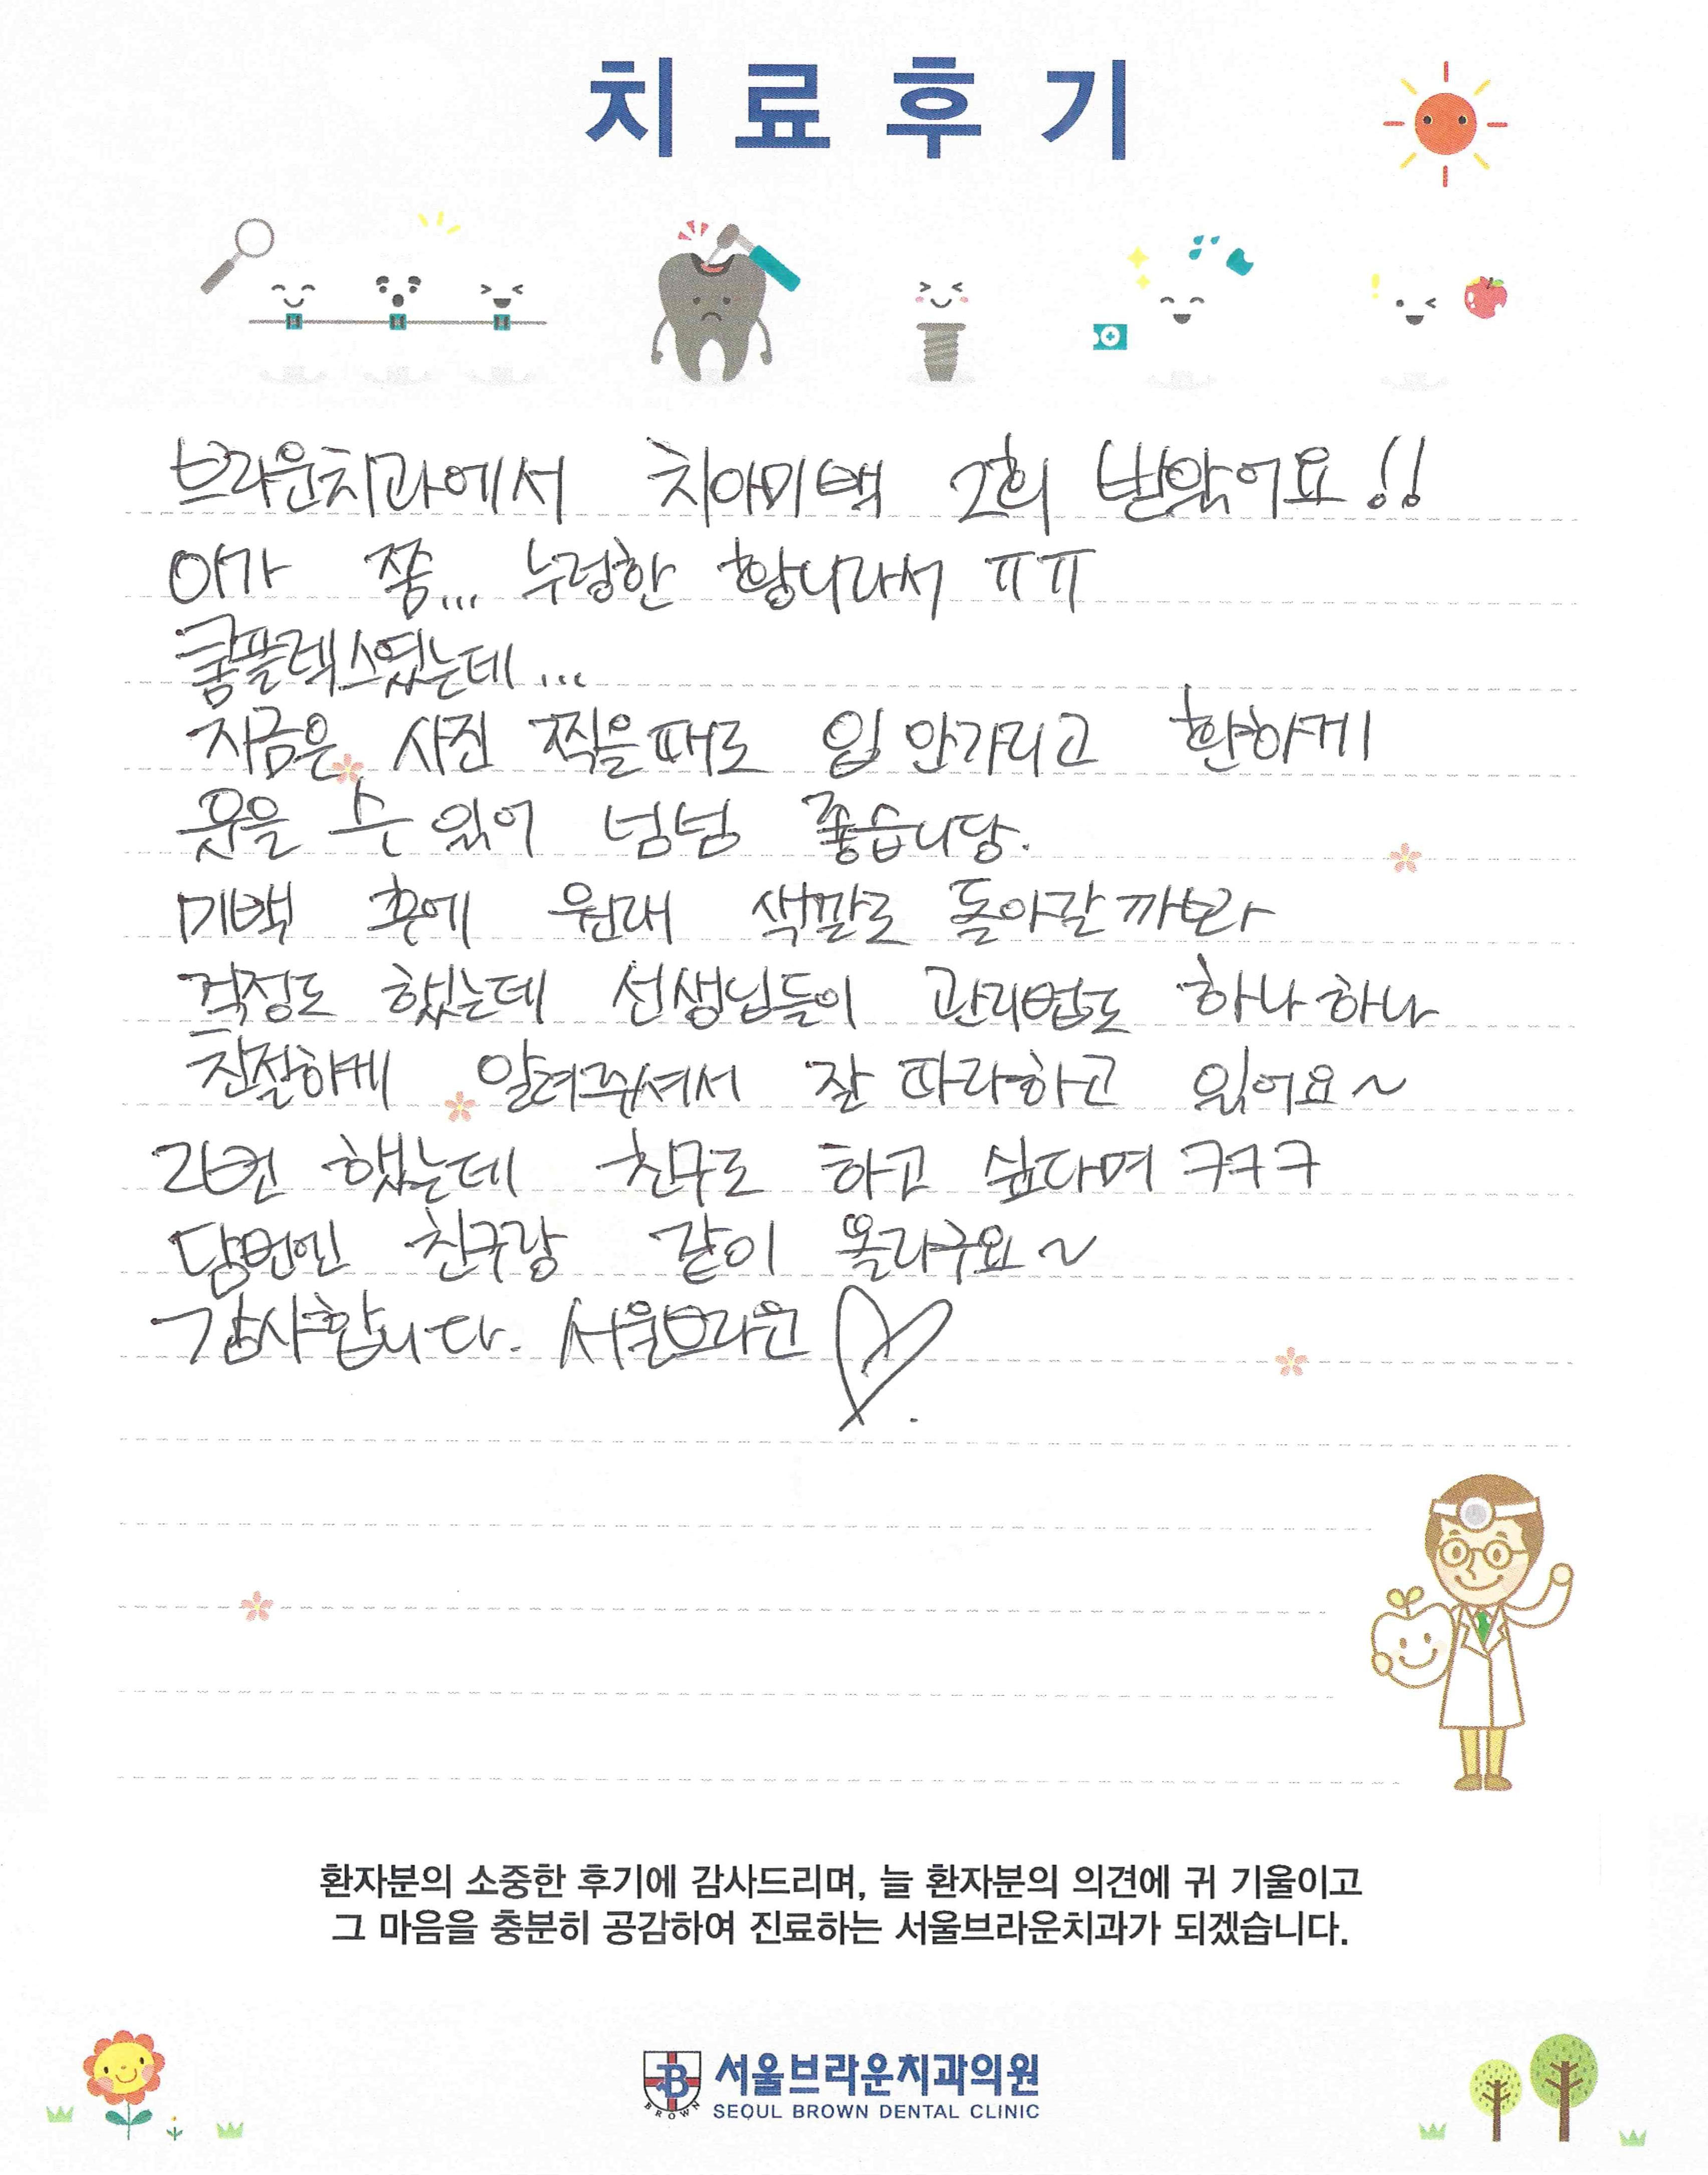 치료후기
브라운치과에서 치아미백 2회 받았어요!!
이가 쫌... 누렁한 황니라서 ㅠㅠ
콤플렉스였는데...
지금은 사진 찍을때도 입 안가리고 환하게
웃을 수 있어 넘넘 좋습니당.
미백 후에 원래 색깔로 돌아갈까봐
걱정도 했는데 선생님들이 관리법도 하나하나
친절하게 알려주셔서 잘 따라하고 있어요~
2번 했는데 친구도 하고 싶다며 ㅋㅋㅋ
담번엔 친구랑 같이 올라구요~
감사합니다. 서울브라운♡.
환자분의 소중한 후기에 감사드리며, 늘 환자분의 의견에 귀 기울이고
그 마음을 충분히 공감하여 진료하는 서울브라운치과가 되겠습니다.
B
BROWN
서울브라운치과의원
SEOUL BROWN DENTAL CLINIC